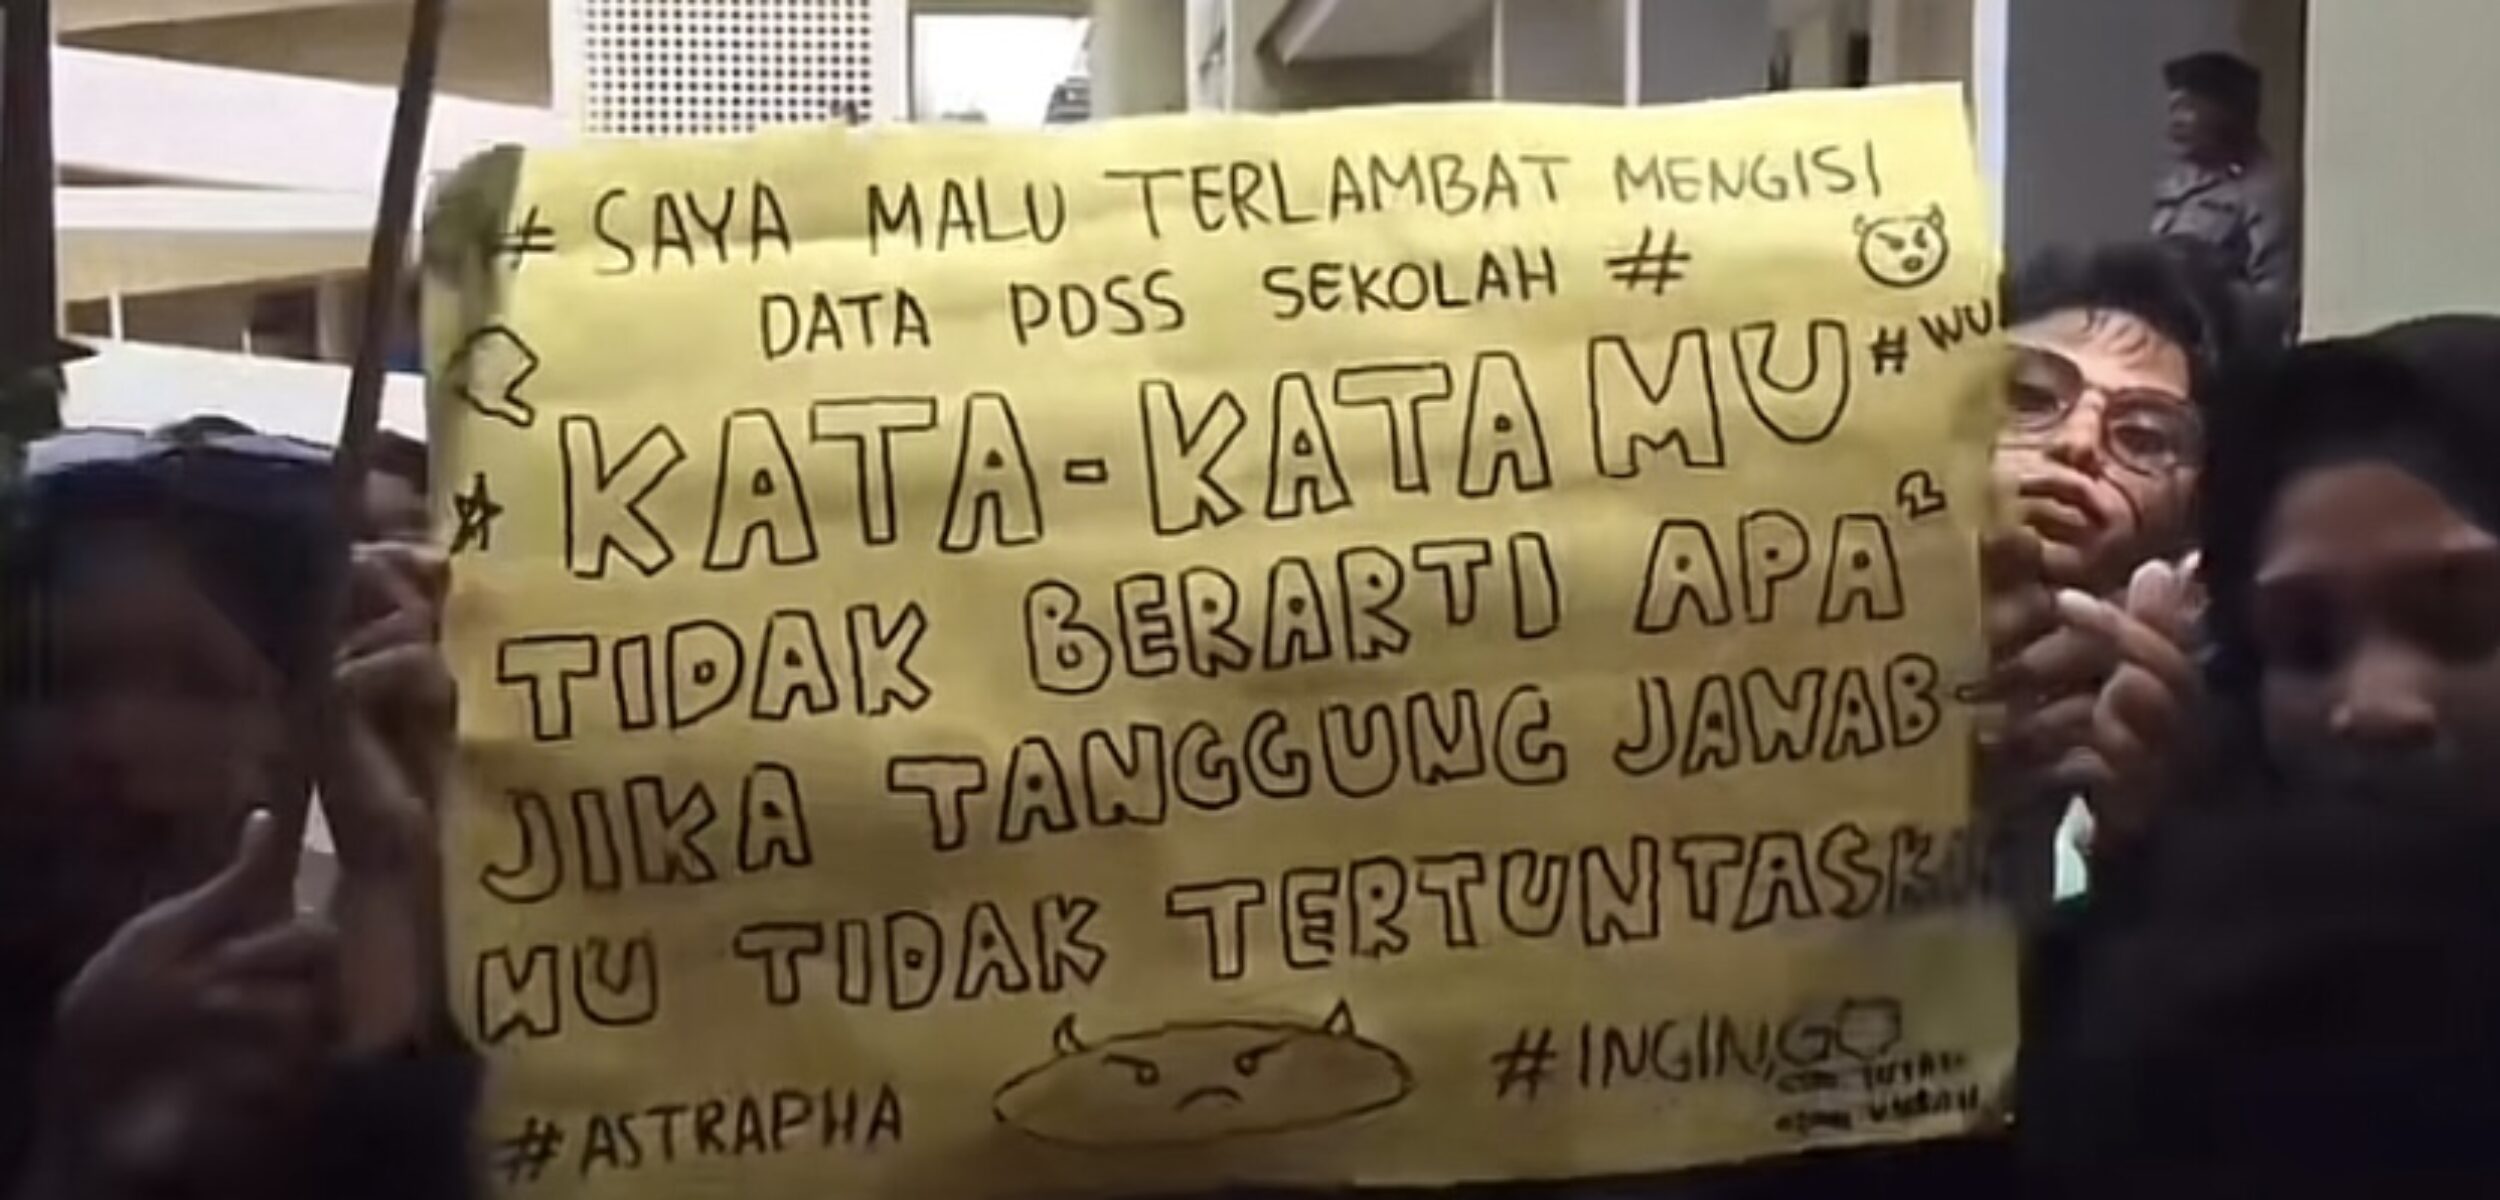 # SAYA MALU TERLAMBAT MENGISI
DATA PDSS SEKOLAH #
KATA-KATAMU
TIDAK BERARTI APA²
JIKA TANGGUNG JAWAB-
MU TIDAK TERTUNTASK
#ASTRAPHA